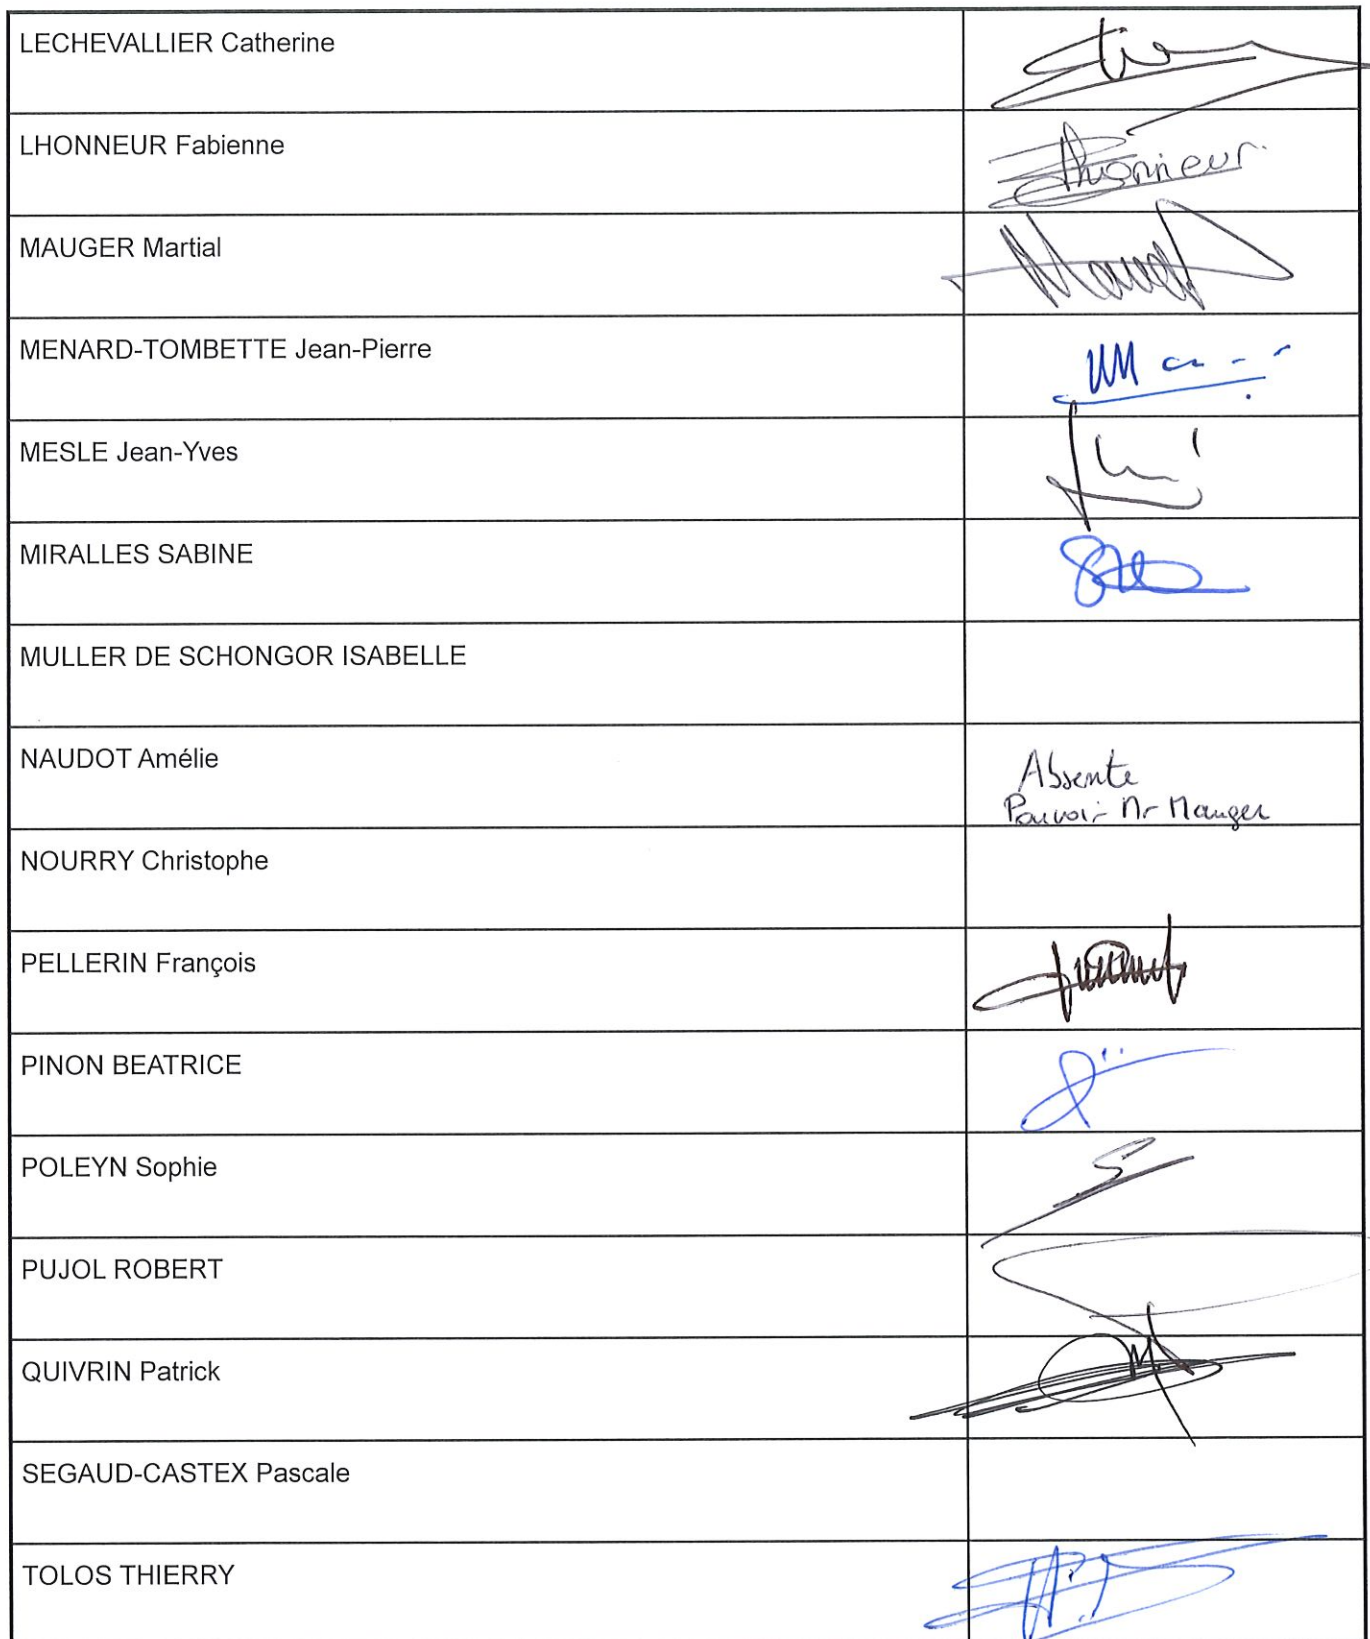 LECHEVALLIER Catherine
LHONNEUR Fabienne
Lhonneur
MAUGER Martial
MENARD-TOMBETTE Jean-Pierre
MESLE Jean-Yves
MIRALLES SABINE
MULLER DE SCHONGOR ISABELLE
NAUDOT Amélie
Absente
Pouvoir Mr Mauger
NOURRY Christophe
PELLERIN François
PINON BEATRICE
POLEYN Sophie
PUJOL ROBERT
QUIVRIN Patrick
SEGAUD-CASTEX Pascale
TOLOS THIERRY